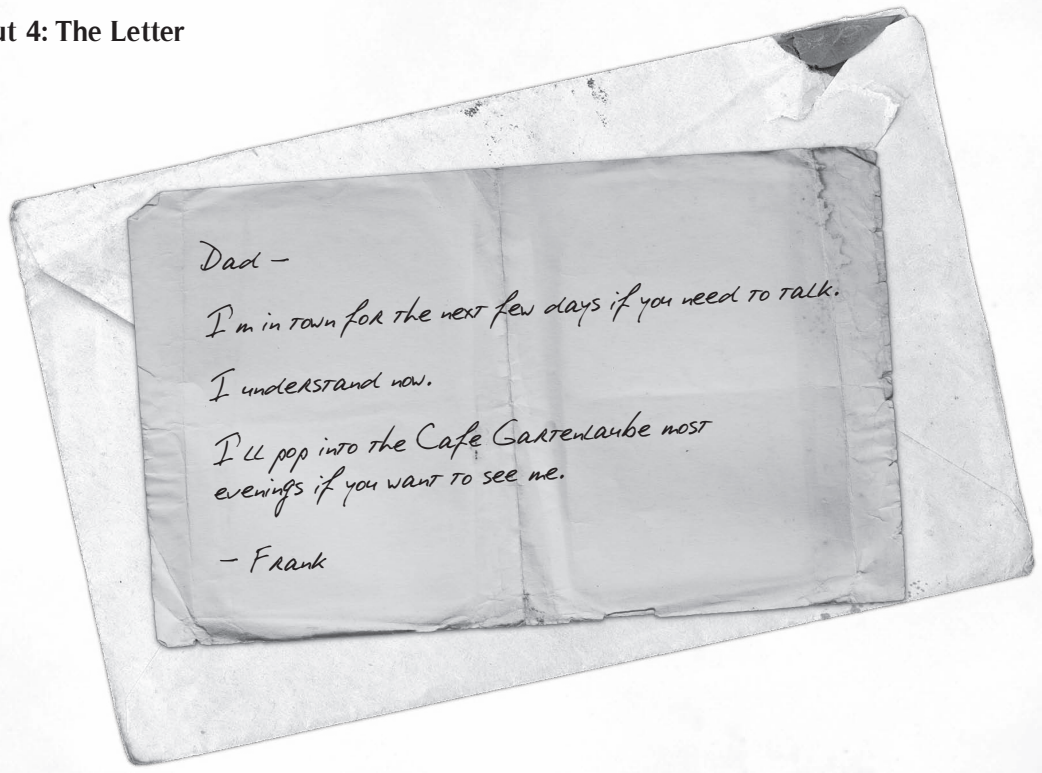 ut 4: The Letter
Dad –
I'm in town for the next few days if you need to talk.
I understand now.
I'll pop into the Cafe Gartenlaube most
evenings if you want to see me.
– Frank